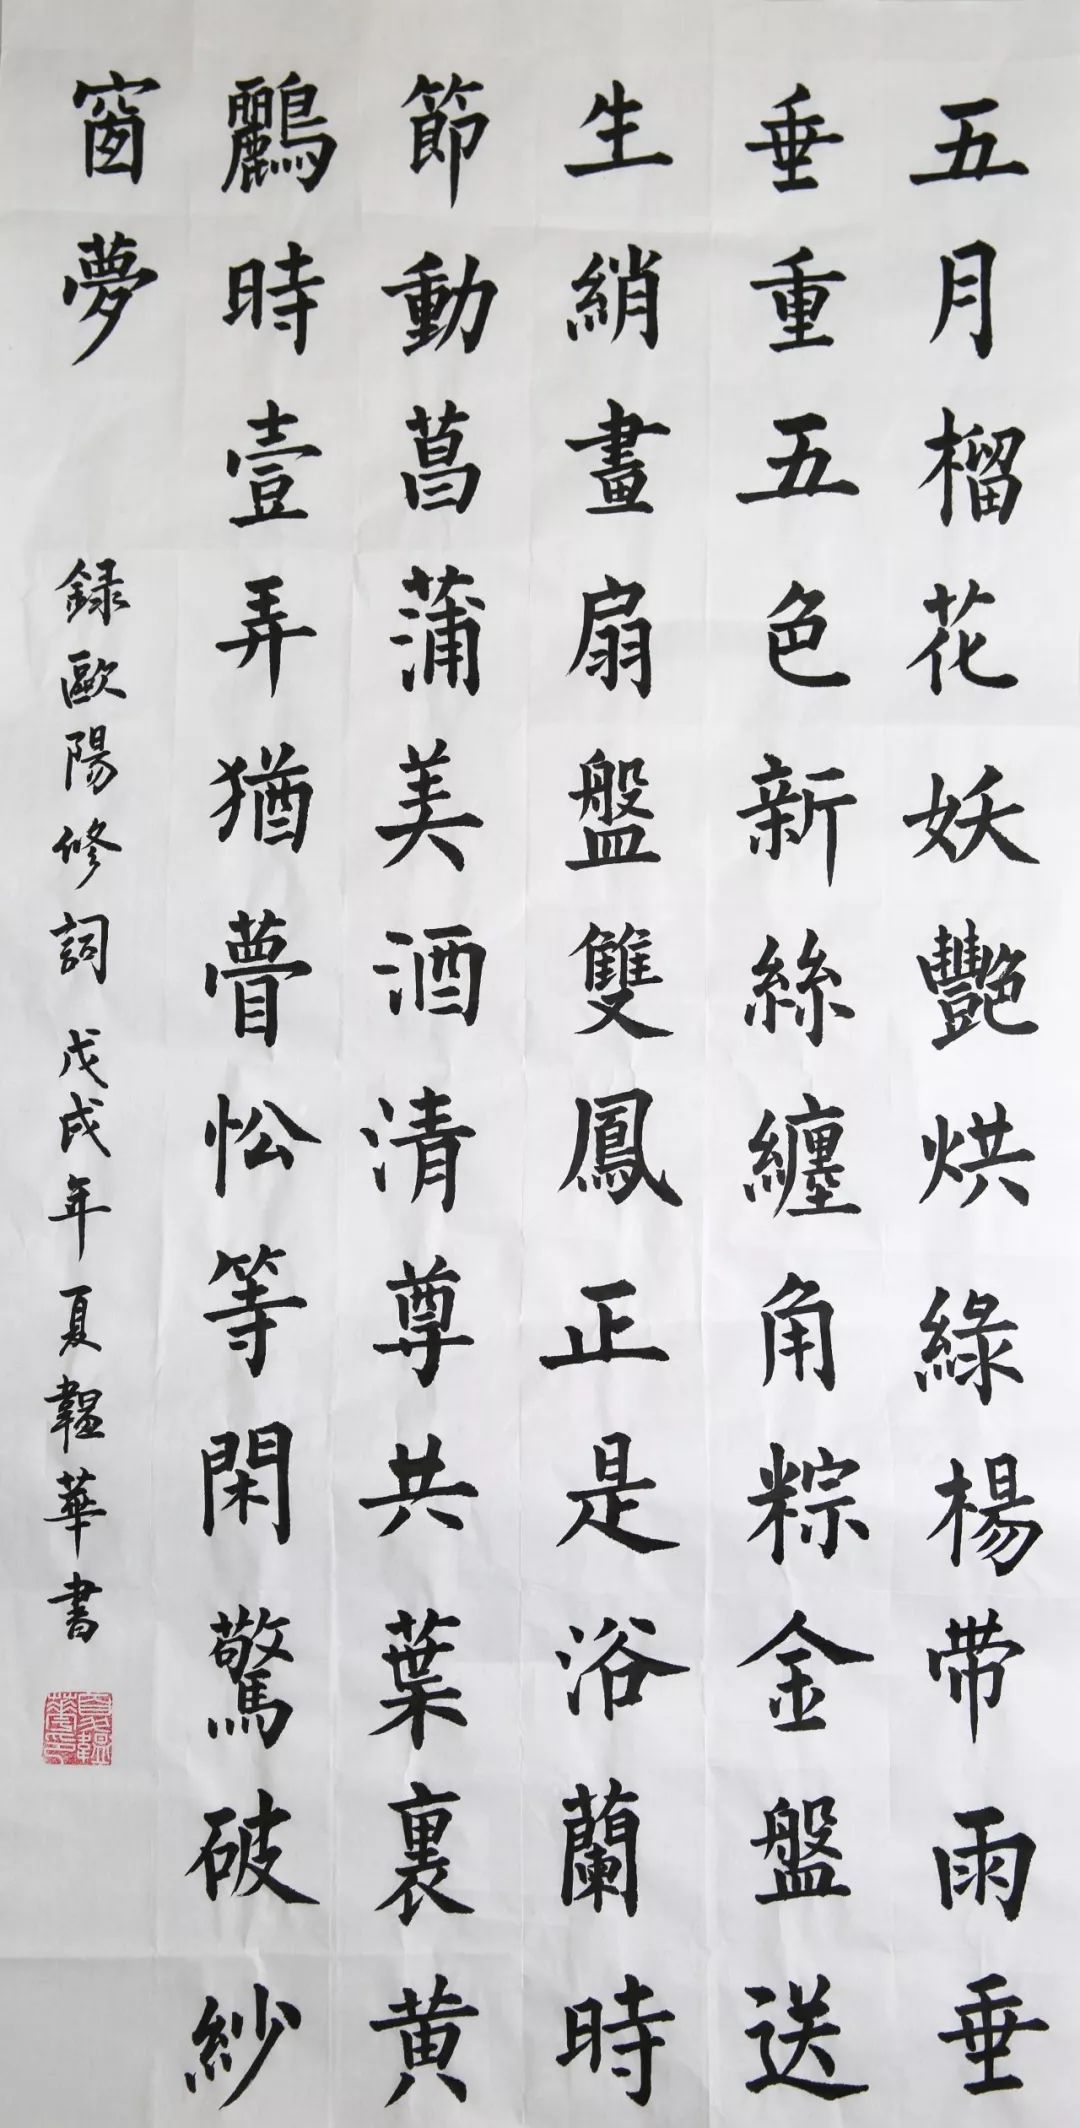 五月榴花妖艷烘綠楊带雨垂
垂重五色新絲纏角粽金盤送
生綃畫扇盤雙鳳正是浴蘭時
節動菖蒲美酒清尊共葉裏黄
鸝時壹弄猶瞢忪等閑驚破紗
窗夢
録歐陽修詞戊戌年夏韞華書
夏韞華印